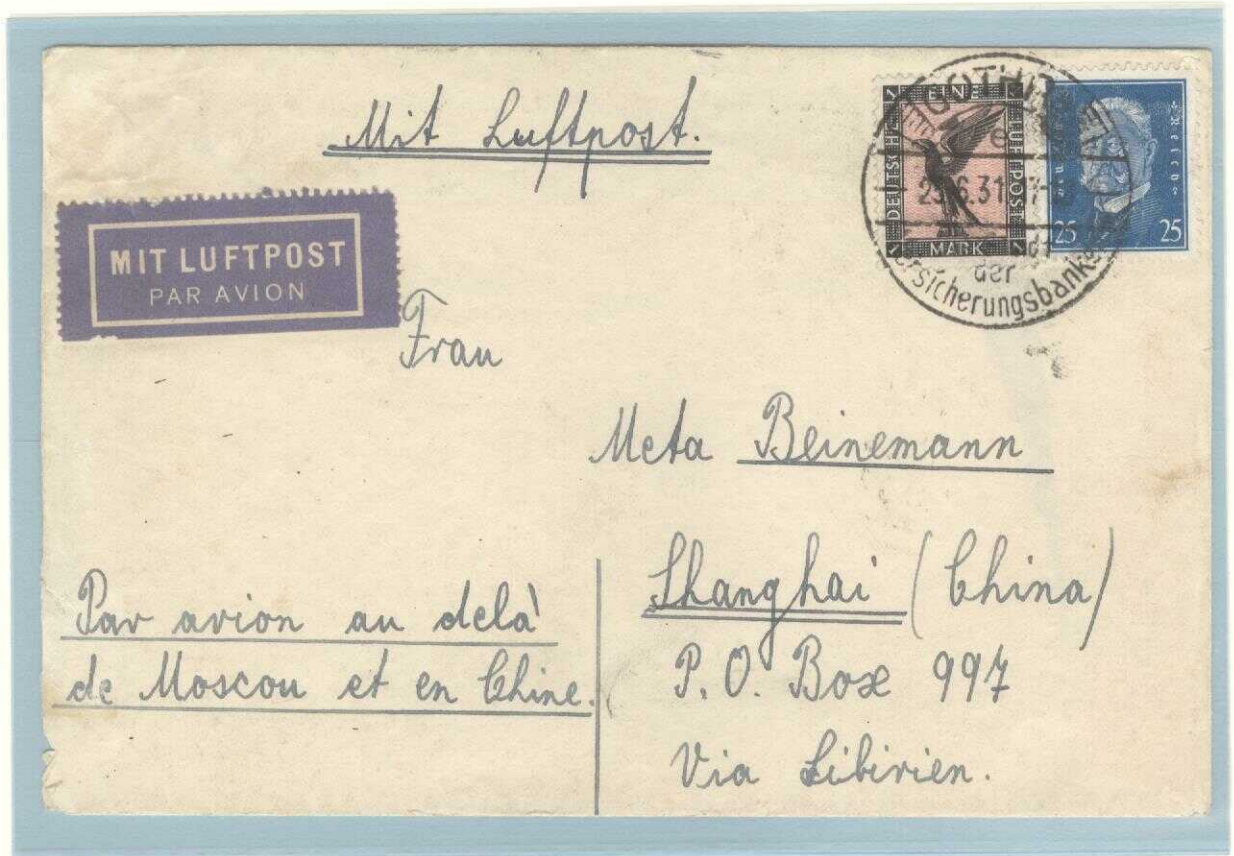 Mit Luftpost.
MIT LUFTPOST
PAR AVION
EINE
DEUTSCHE
FLUGPOST
MARK
Reich
25 25
GOTHA
6.31
der
Versicherungsbanken
Frau
Meta Beinemann
Shanghai (China)
P. O. Box 997
Via Sibirien.
Par avion au delà
de Moscou et en Chine.